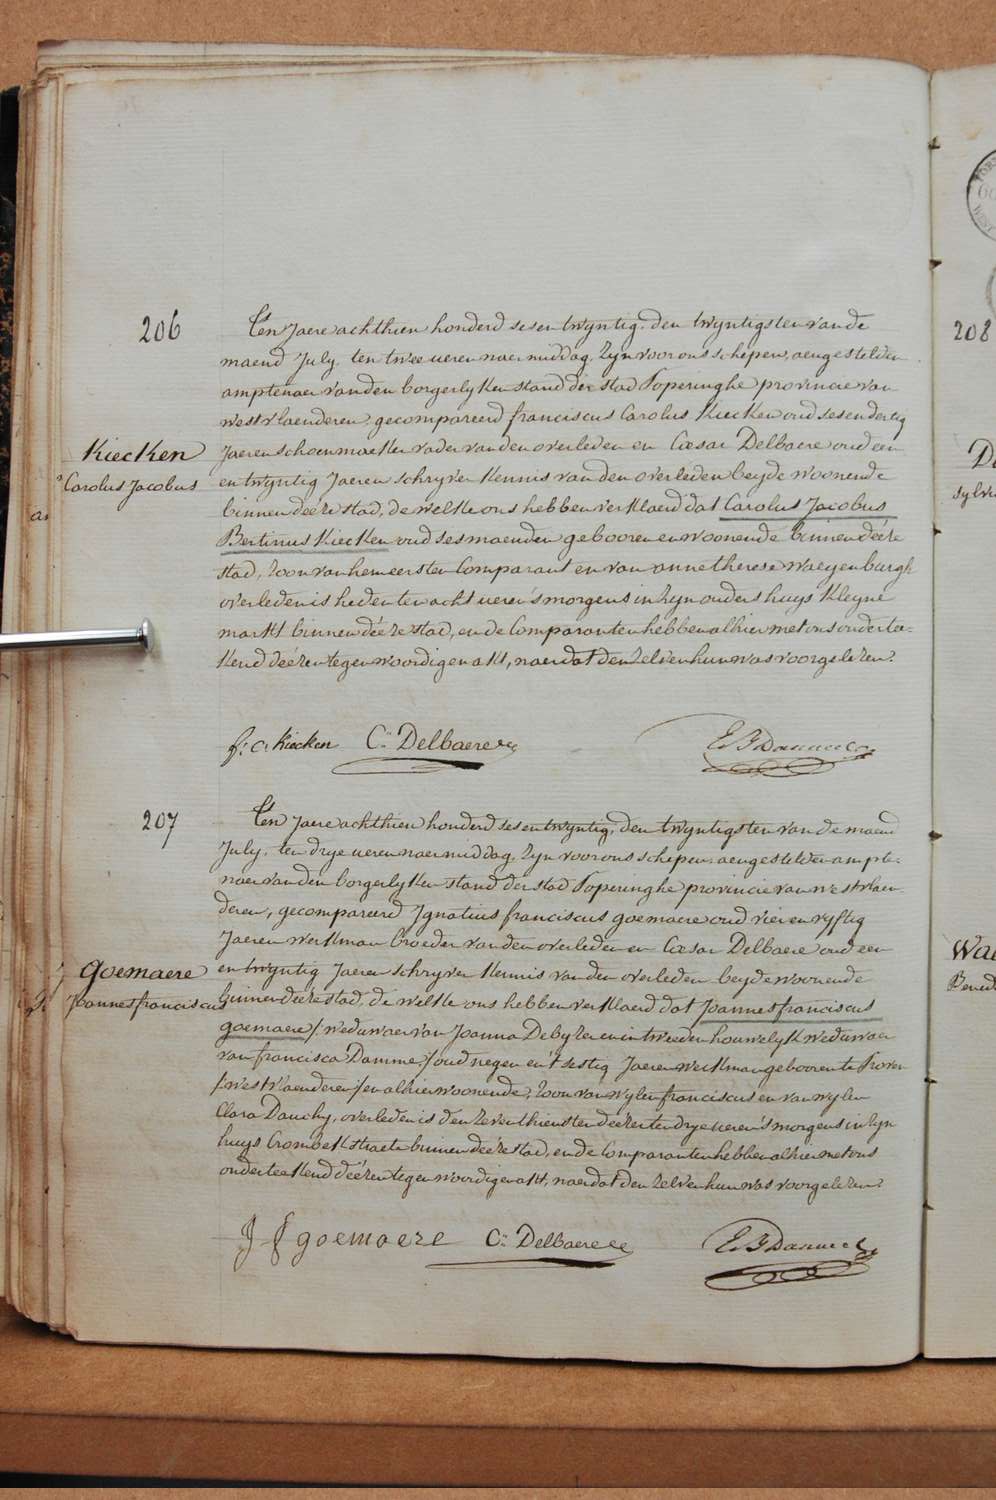 206
Ten Jaere achthien honderd sesentwyntig, den twyntigsten van de
maend July, ten twee ueren naermiddag, Zyn voor ons schepen, aengestelden
amptenaer van den borgerlyken stand der stad Poperinghe provincie van
westvlaenderen, gecompareerd franciscus Carolus Kiecken oud sesendertig
Kiecken
Carolus Jacobus
Jaeren schoenmaeker vader van den overleden en Cæsar Delbaere oud een
en twyntig Jaeren schryver Kennis van den overleden beyde woonende
binnen deéze stad, de welke ons hebben verklaerd dat Carolus Jacobus
Bertinus Kiecken oud ses maenden gebooren en woonende binnen deéze
stad, Zoon van hem eersten Comparant en van anne therese waeyenburgh
overleden is heden ten acht ueren s'morgens in Zyn ouders huys Kleyne
markt binnen deéze stad, en de Comparanten hebben alhier met ons ondertee-
Kend deézen tegenwoordigen akt, naer dat den Zelven hun was voorgelezen.
f: c: Kiecken C:n Delbaere
207
Ten Jaere achthien honderd sesentwyntig, den twyntigsten van de maend
July, ten drye ueren naermiddag, Zyn voor ons schepen aengestelden ampte-
naer van den borgerlyken stand der stad Poperinghe provincie van westvlaen-
deren, gecompareerd Ignatius franciscus goemaere oud vier en vyftig
Jaeren werkman broeder van den overleden en Cæsar Delbaere oud een
goemaere
Joannes franciscus
en twyntig Jaeren schryver Kennis van den overleden beyde woonende
binnen deéze stad, de welke ons hebben verklaerd dat Joannes franciscus
goemaere /: weduwaer van Joanna Debyser en in tweeden houwelyk weduwaer
van francisca Damme,/ oud negen en 't sestig Jaeren werkman gebooren te Proven
/: westvlaenderen :/ en alhier woonende, Zoon van wylen franciscus en van wylen
Clara Dauchy, overleden is den Zeventhiensten deézer ten drye ueren s'morgens in Zyn
huys Crombekstraete binnen deéze stad, en de Comparanten hebben alhier met ons
onderteekend deézen tegenwoordigen akt, naer dat den Zelven hun was voorgelezen.
J f goemaere C:n Delbaere
208